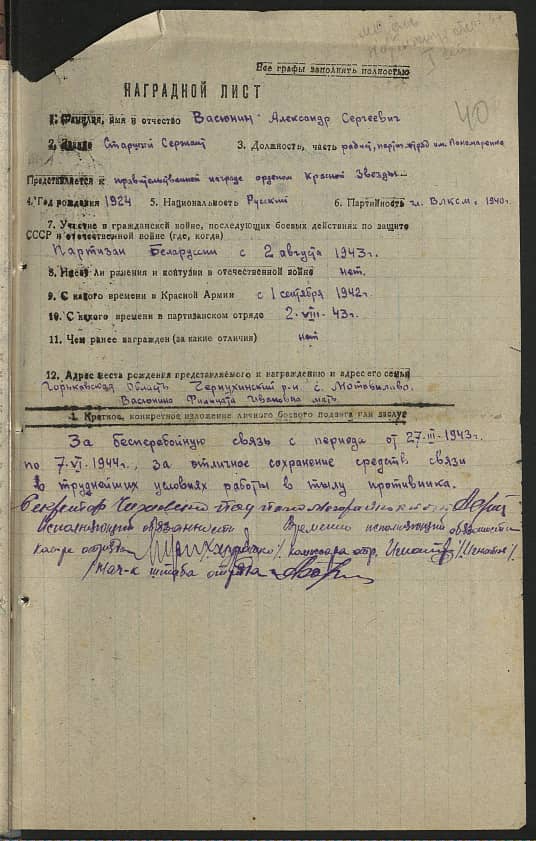 медаль
I степ
40
Все графы заполнить полностью
НАГРАДНОЙ ЛИСТ
1. Фамилия, имя и отчество Васюнин Александр Сергеевич
2. Звание Старший Сержант 3. Должность, часть радист, парт. отряд им. Пономаренко
Представляется к правительственной награде орденом Красной Звезды
4. Год рождения 1924 5. Национальность Русский 6. Партийность чл. ВЛКСМ. 1940г.
7. Участие в гражданской войне, последующих боевых действиях по защите
СССР и отечественной войне (где, когда)
Партизан Белоруссии с 2 августа 1943г.
8. Имеет ли ранения и контузии в отечественной войне нет.
9. С какого времени в Красной Армии с 1 сентября 1942г.
10. С какого времени в партизанском отряде 2-VIII-43г.
11. Чем ранее награжден (за какие отличия) нет
12. Адрес места рождения представляемого к награждению и адрес его семьи
Горьковская Область Чернухинский р-н с. Мотовилово.
Васюнина Филицата Ивановна мать.
1. Краткое, конкретное изложение личного боевого подвига или заслуг
За бесперебойную связь с периода от 27-III-1943г.
по 7-VI-1944г., за отличное сохранение средств связи
в труднейших условиях работы в тылу противника.
Секретарь
Исполняющий обязанности Временно исполняющий обязанности
отряда комиссара отр. /Игнатов/.
/Нач-к штаба отряда